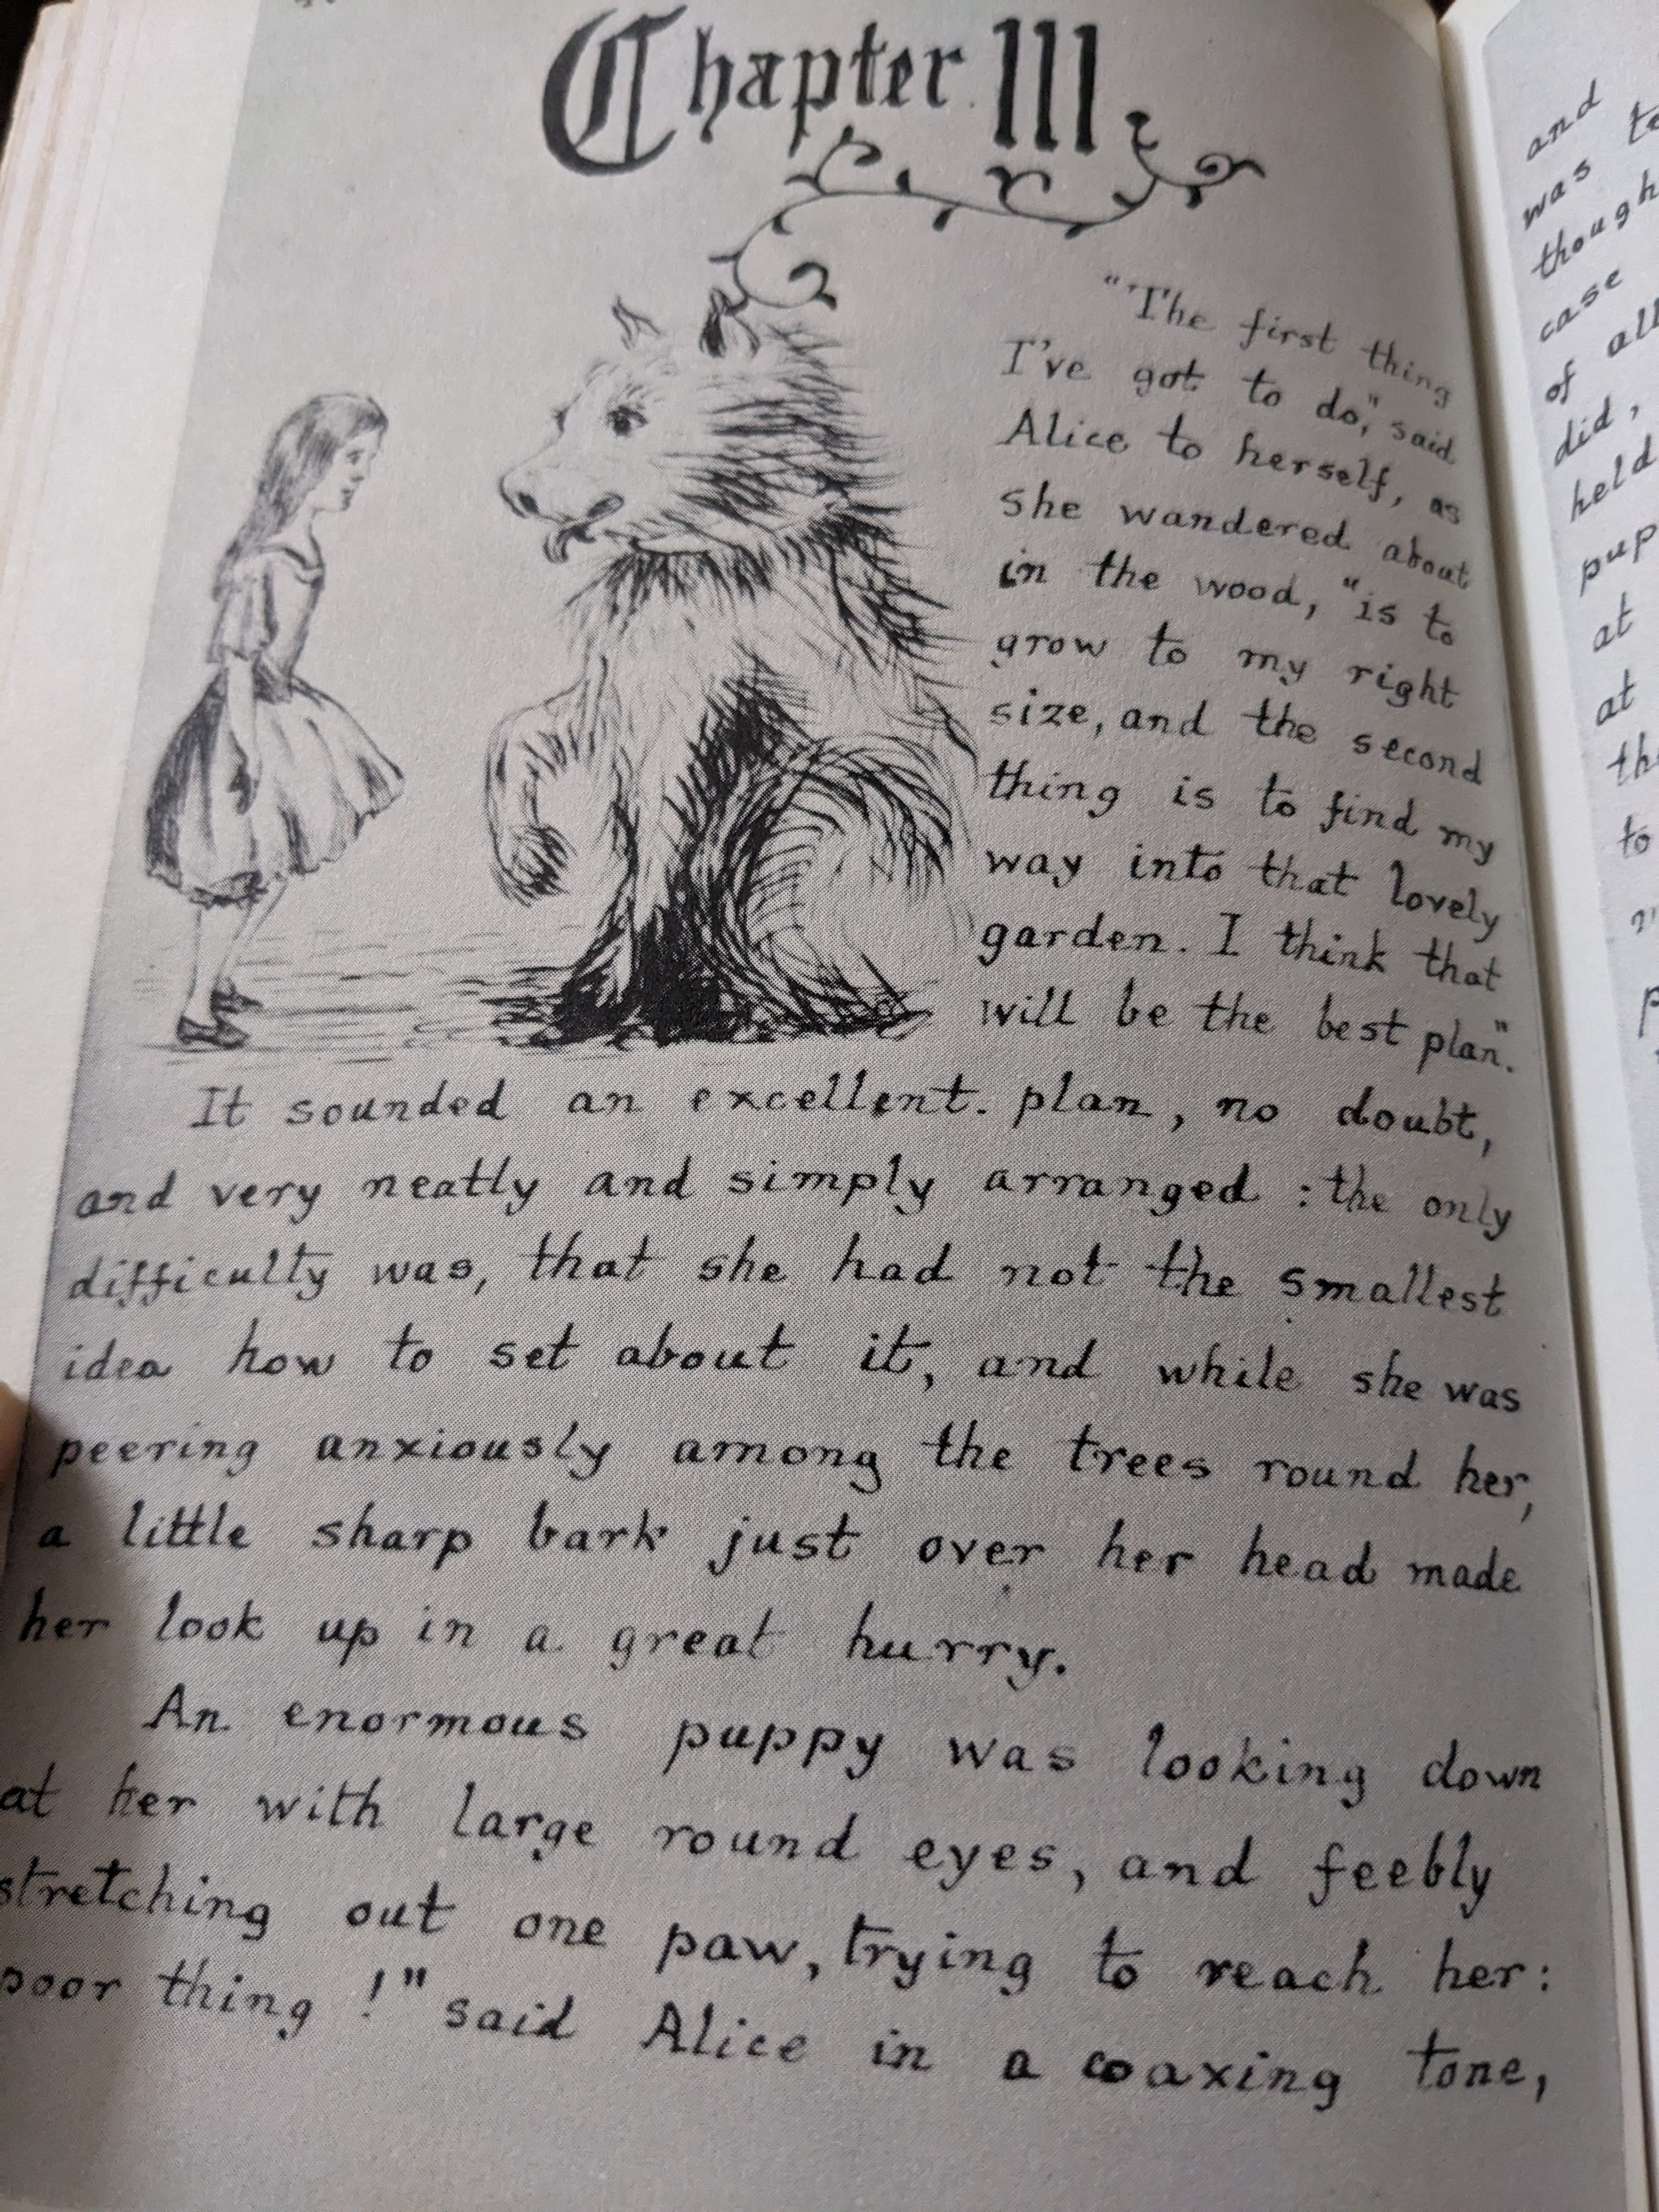 Chapter III
"The first thing
I've got to do," said
Alice to herself, as
she wandered about
in the wood, "is to
grow to my right
size, and the second
thing is to find my
way into that lovely
garden. I think that
will be the best plan".
It sounded an excellent plan, no doubt,
and very neatly and simply arranged : the only
difficulty was, that she had not the smallest
idea how to set about it, and while she was
peering anxiously among the trees round her,
a little sharp bark just over her head made
her look up in a great hurry.
An enormous puppy was looking down
at her with large round eyes, and feebly
stretching out one paw, trying to reach her:
poor thing!" said Alice in a coaxing tone,
and
was
though
case
of all
did,
held
pup
at
at
the
to